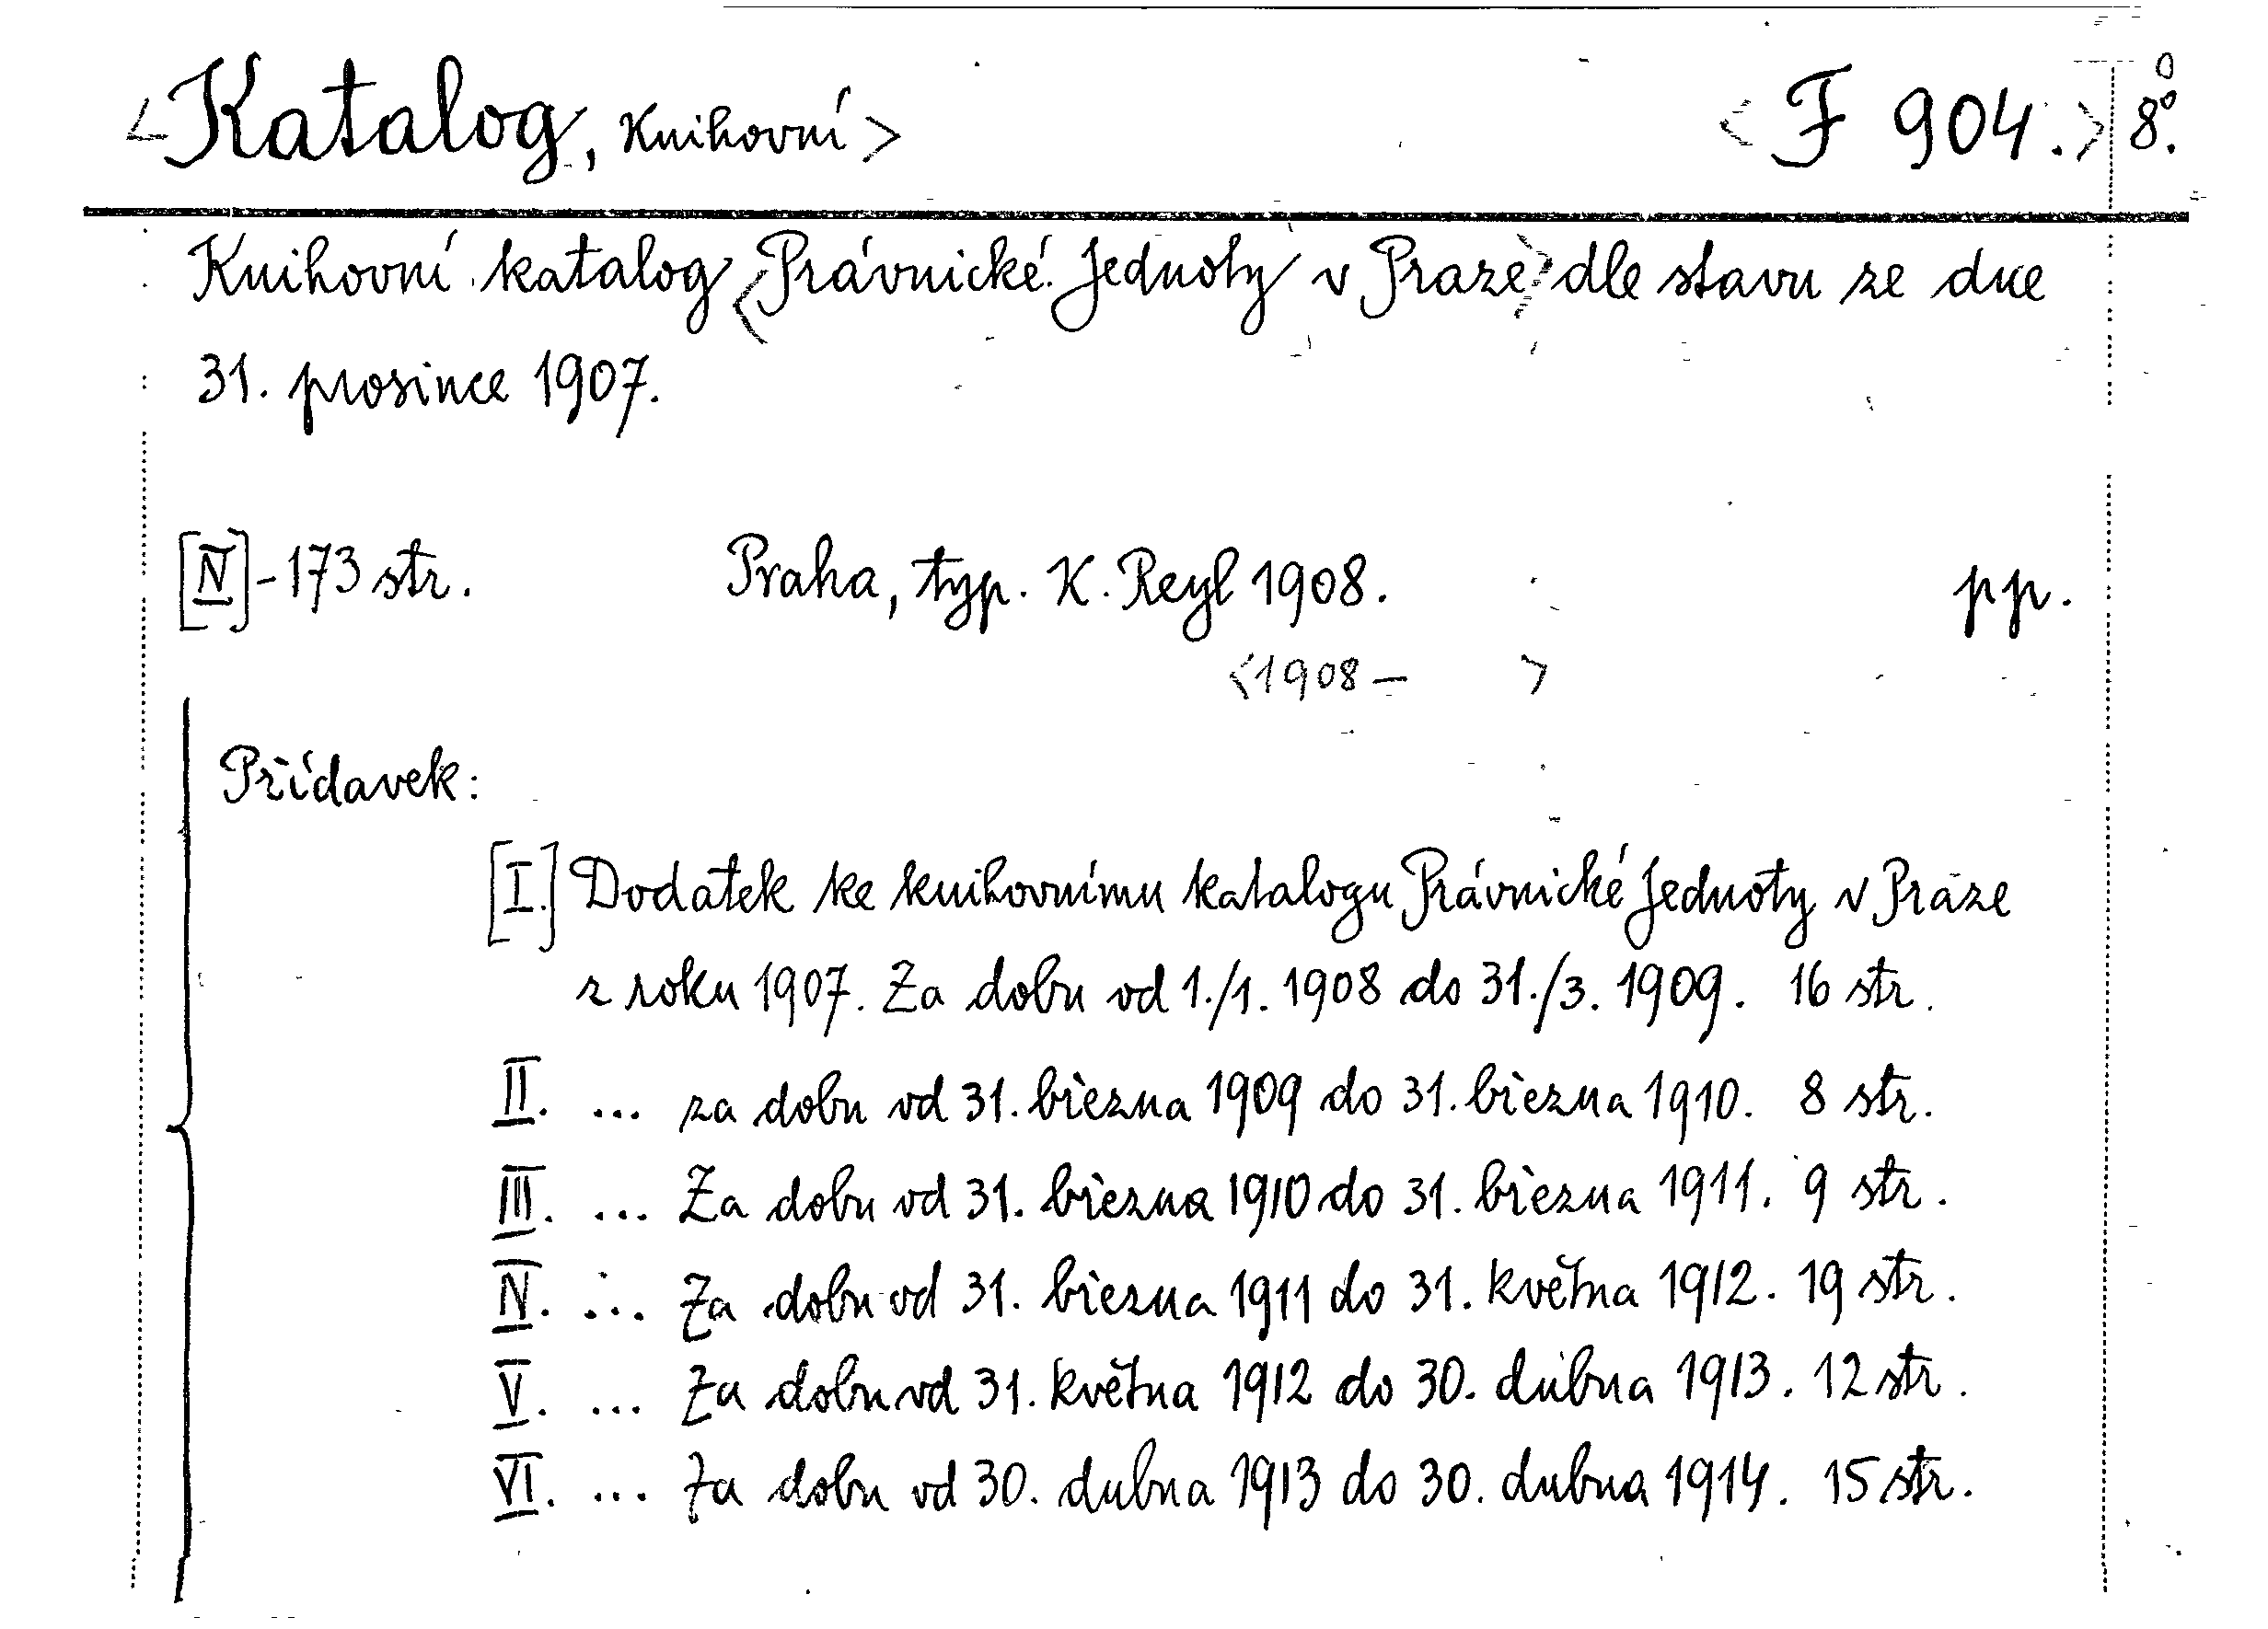 <Katalog, Knihovní> <F 904.> 8°.
Knihovní katalog <Právnické Jednoty v Praze> dle stavu ze dne
31. prosince 1907.
[IV]-173 str. Praha, typ. K. Reyl 1908. pp.
<1908 - >
Přídavek:
[I.] Dodatek ke knihovnímu katalogu Právnické Jednoty v Praze
z roku 1907. Za dobu od 1./1. 1908 do 31./3. 1909. 16 str.
II. ... za dobu od 31. března 1909 do 31. března 1910. 8 str.
III. ... Za dobu od 31. března 1910 do 31. března 1911. 9 str.
IV. ... Za dobu od 31. března 1911 do 31. května 1912. 19 str.
V. ... Za dobu od 31. května 1912 do 30. dubna 1913. 12 str.
VI. ... Za dobu od 30. dubna 1913 do 30. dubna 1914. 15 str.